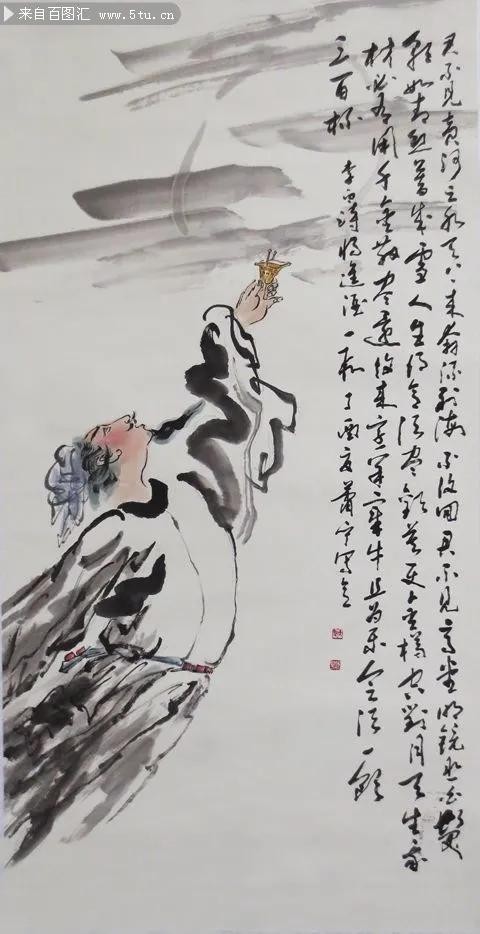 来自百图汇 www.5tu.cn
君不见黄河之水天上来奔流到海不復回君不见高堂明镜悲白髮
朝如青丝暮成雪人生得意须尽歡莫使金樽空對月天生我
材必有用千金散尽還復来烹羊宰牛且为乐会须一飲
三百杯 李白诗将進酒一 丁酉夏萧宁写意